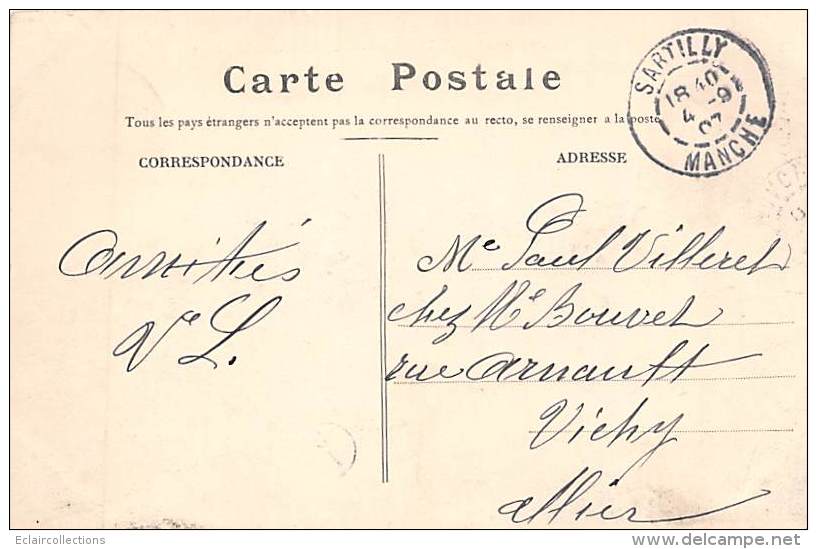 Carte Postale
Tous les pays étrangers n'acceptent pas la correspondance au recto, se renseigner a la poste
CORRESPONDANCE
ADRESSE
SARTILLY
18 40
4 - 9
07
MANCHE
Amitiés
Ve L.
Me Paul Villeret
chez Me Bouvet
rue Arnault
Vichy
Allier
Eclaircollections
www.delcampe.net